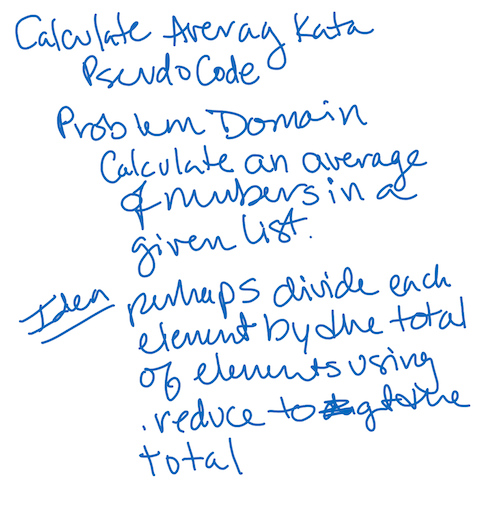 Calculate Averag Kata
PseudoCode
Problem Domain
Calculate an average
of numbers in a
given list.
Idea perhaps divide each
element by the total
of elements using
.reduce to get the
total